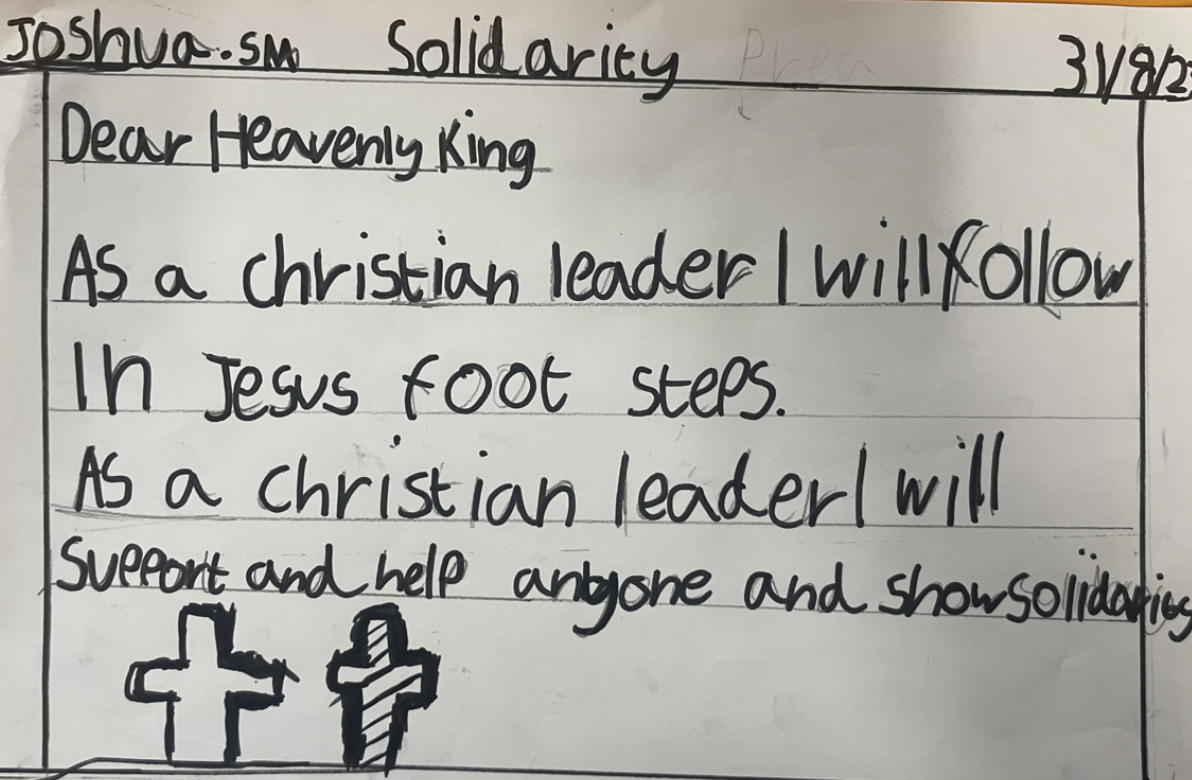 Joshua.SM Solidarity 31/8/2
Dear Heavenly King
As a christian leader I will follow
In Jesus foot steps.
As a christian leader I will
Support and help anbyone and show solidarity